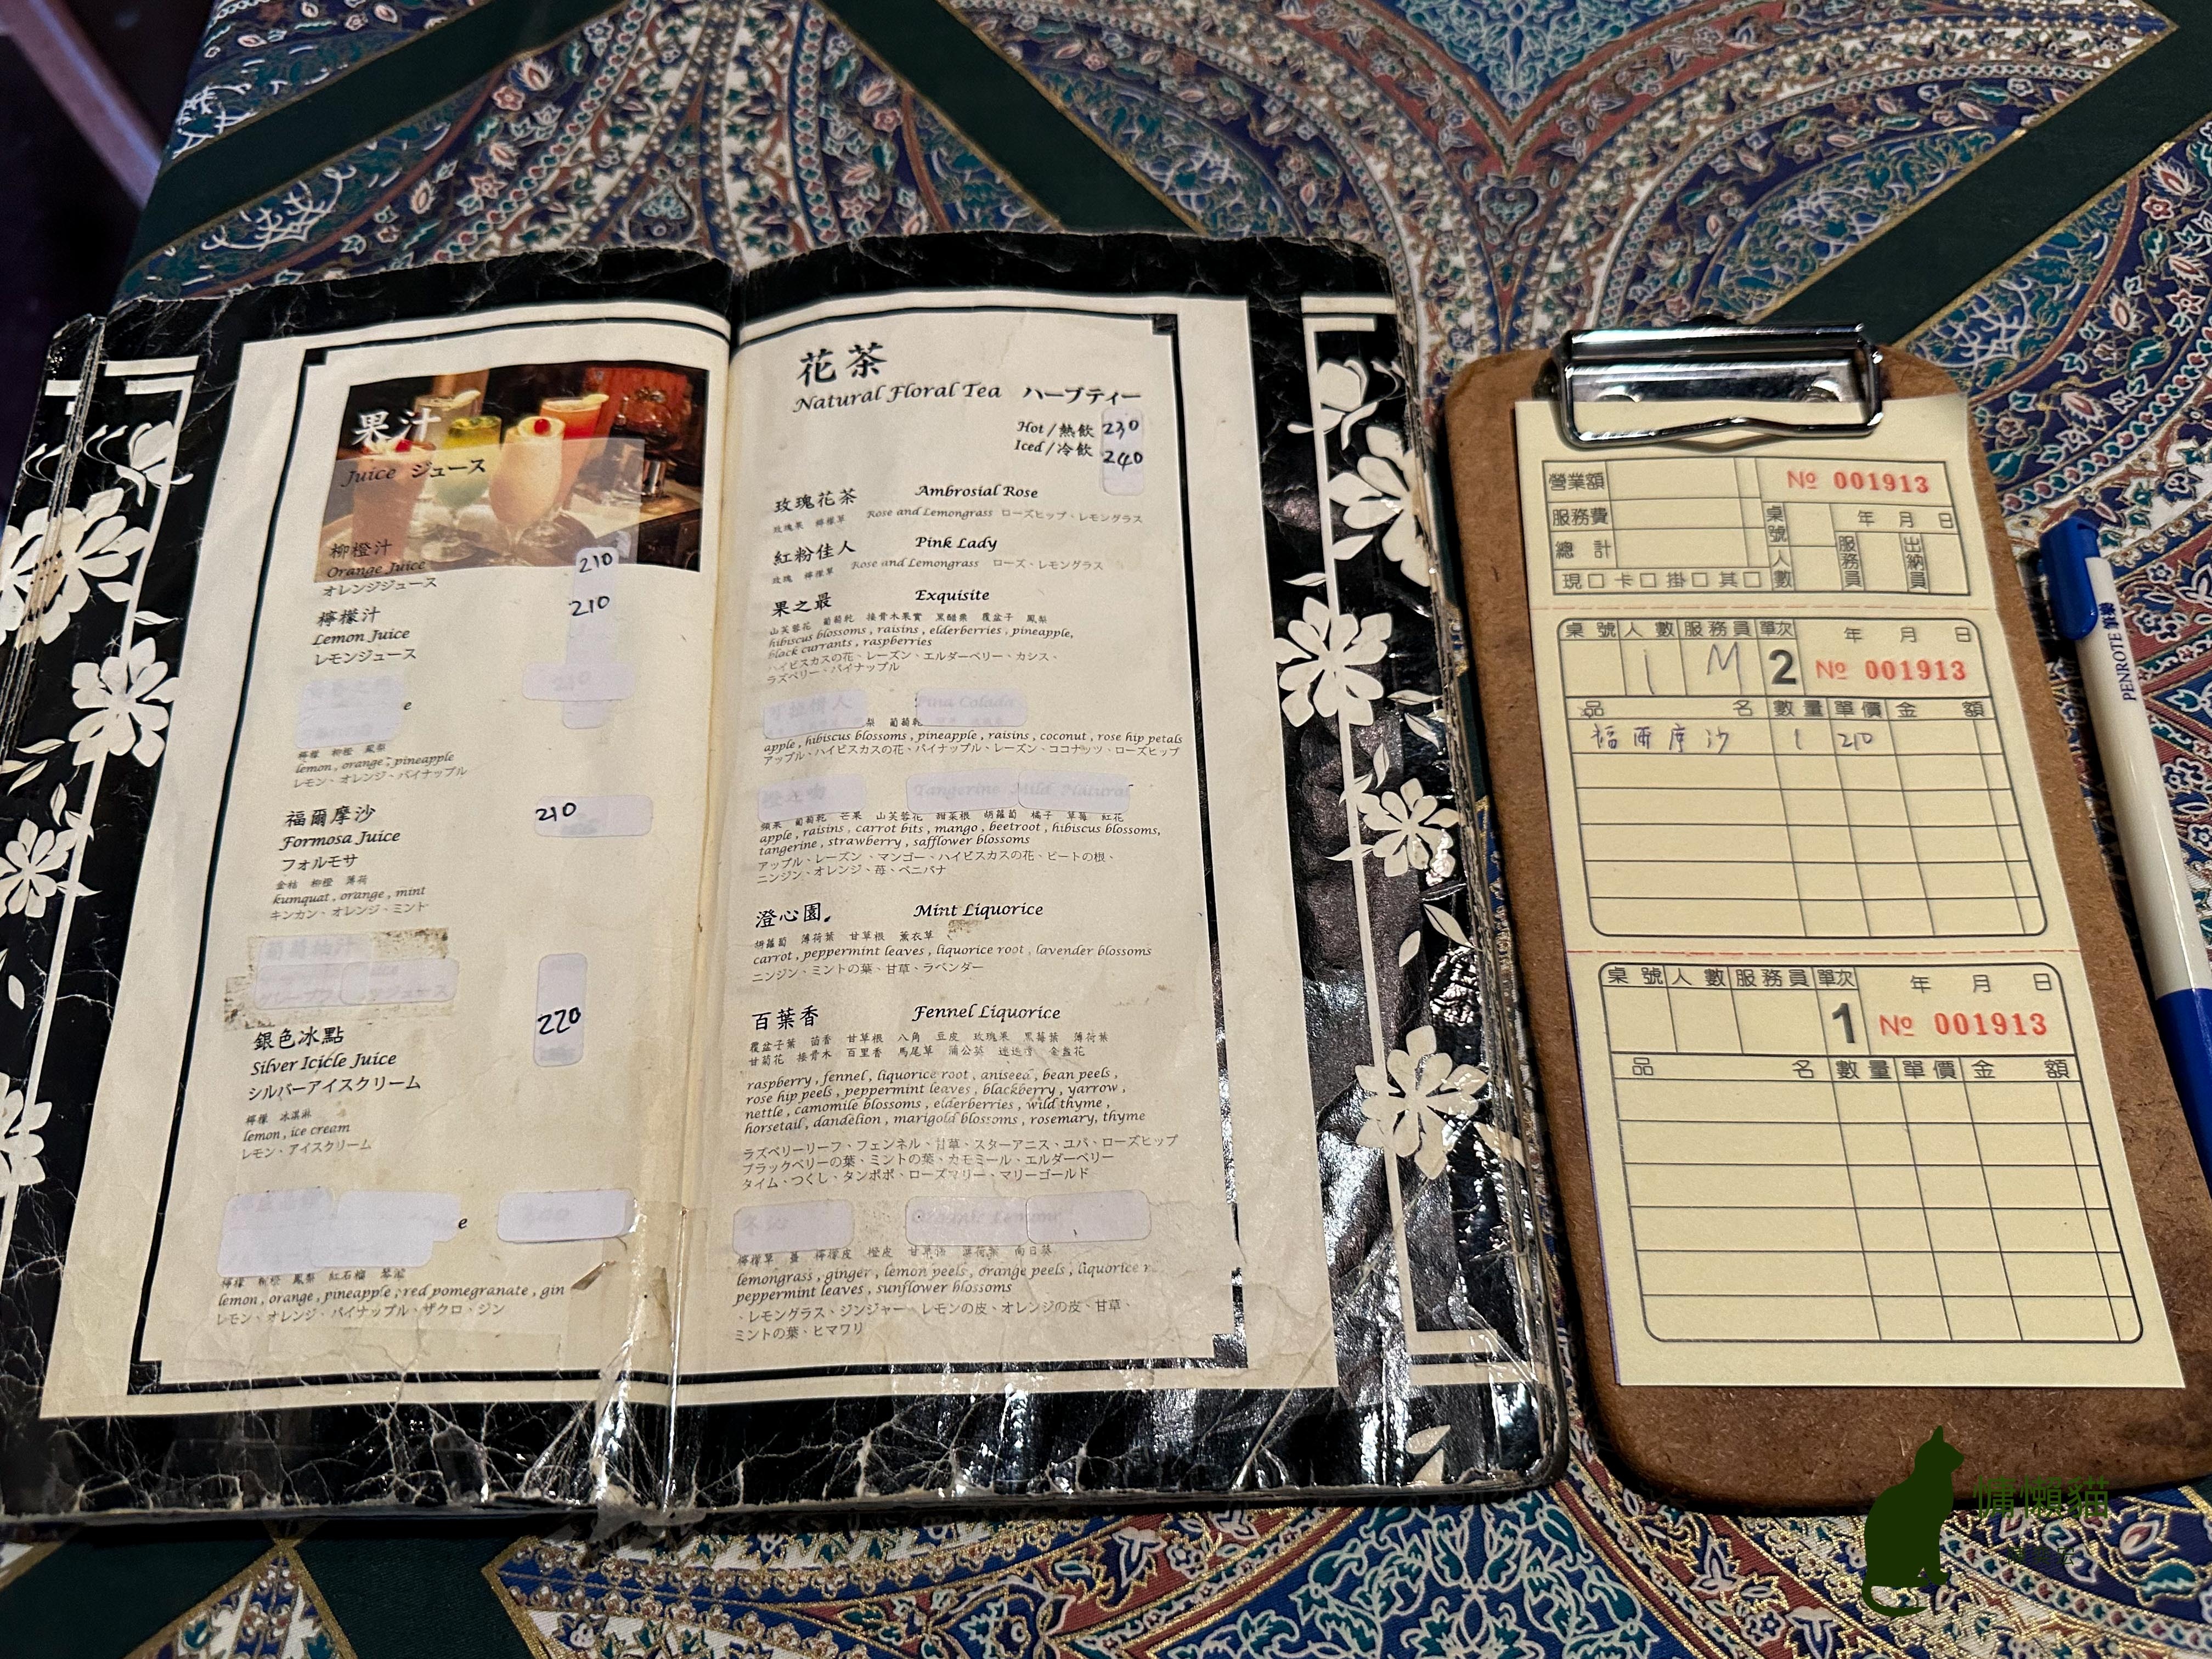 果汁
Juice ジュース
柳橙汁
Orange Juice 210
オレンジジュース
檸檬汁 210
Lemon Juice
レモンジュース
210
e
檸檬 柳橙 鳳梨
lemon , orange , pineapple
レモン、オレンジ、パイナップル
福爾摩沙 210
Formosa Juice
フォルモサ
金桔 柳橙 薄荷
kumquat , orange , mint
キンカン、オレンジ、ミント
葡萄柚汁
銀色冰點 220
Silver Icicle Juice
シルバーアイスクリーム
檸檬 冰淇淋
lemon , ice cream
レモン、アイスクリーム
e
檸檬 柳橙 鳳梨 紅石榴 琴酒
lemon , orange , pineapple , red pomegranate , gin
レモン、オレンジ、パイナップル、ザクロ、ジン
花茶
Natural Floral Tea ハーブティー
Hot / 熱飲 230
Iced / 冷飲 240
玫瑰花茶 Ambrosial Rose
玫瑰果 檸檬草 Rose and Lemongrass ローズヒップ、レモングラス
紅粉佳人 Pink Lady
玫瑰 檸檬草 Rose and Lemongrass ローズ、レモングラス
果之最 Exquisite
山芙蓉花 葡萄乾 接骨木果實 黑醋栗 覆盆子 鳳梨
hibiscus blossoms , raisins , elderberries , pineapple,
black currants , raspberries
ハイビスカスの花、レーズン、エルダーベリー、カシス、
ラズベリー、パイナップル
情人 Pina Colada
梨 葡萄乾
apple , hibiscus blossoms , pineapple , raisins , coconut , rose hip petals
アップル、ハイビスカスの花、パイナップル、レーズン、ココナッツ、ローズヒップ
Tangerine Mild Natural
蘋果 葡萄乾 芒果 山芙蓉花 甜菜根 胡蘿蔔 橘子 草莓 紅花
apple , raisins , carrot bits , mango , beetroot , hibiscus blossoms,
tangerine , strawberry , safflower blossoms
アップル、レーズン、マンゴー、ハイビスカスの花、ビートの根、
ニンジン、オレンジ、苺、ベニバナ
澄心園 Mint Liquorice
胡蘿蔔 薄荷葉 甘草根 薰衣草
carrot , peppermint leaves , liquorice root , lavender blossoms
ニンジン、ミントの葉、甘草、ラベンダー
百葉香 Fennel Liquorice
覆盆子葉 茴香 甘草根 八角 豆皮 玫瑰果 黑莓葉 薄荷葉
甘菊花 接骨木 百里香 馬尾草 蒲公英 迷迭香 金盞花
raspberry , fennel , liquorice root , aniseed , bean peels ,
rose hip peels , peppermint leaves , blackberry , yarrow ,
nettle , camomile blossoms , elderberries , wild thyme ,
horsetail , dandelion , marigold blossoms , rosemary, thyme
ラズベリーリーフ、フェンネル、甘草、スターアニス、ユバ、ローズヒップ
ブラックベリーの葉、ミントの葉、カモミール、エルダーベリー
タイム、つくし、タンポポ、ローズマリー、マリーゴールド
檸檬草 薑 檸檬皮 橙皮 甘草根 薄荷葉 向日葵
lemongrass , ginger , lemon peels , orange peels , liquorice r
peppermint leaves , sunflower blossoms
、レモングラス、ジンジャー、レモンの皮、オレンジの皮、甘草、
ミントの葉、ヒマワリ
營業額 № 001913
服務費 桌號 年 月 日
總計 人數 服務員 出納員
現□ 卡□ 掛□ 其□
桌號 人數 服務員 單次 年 月 日
1 M 2 № 001913
品名 數量 單價 金額
福爾摩沙 1 210
桌號 人數 服務員 單次 年 月 日
1 № 001913
品名 數量 單價 金額
PENROTE 筆樂
慵懶貓